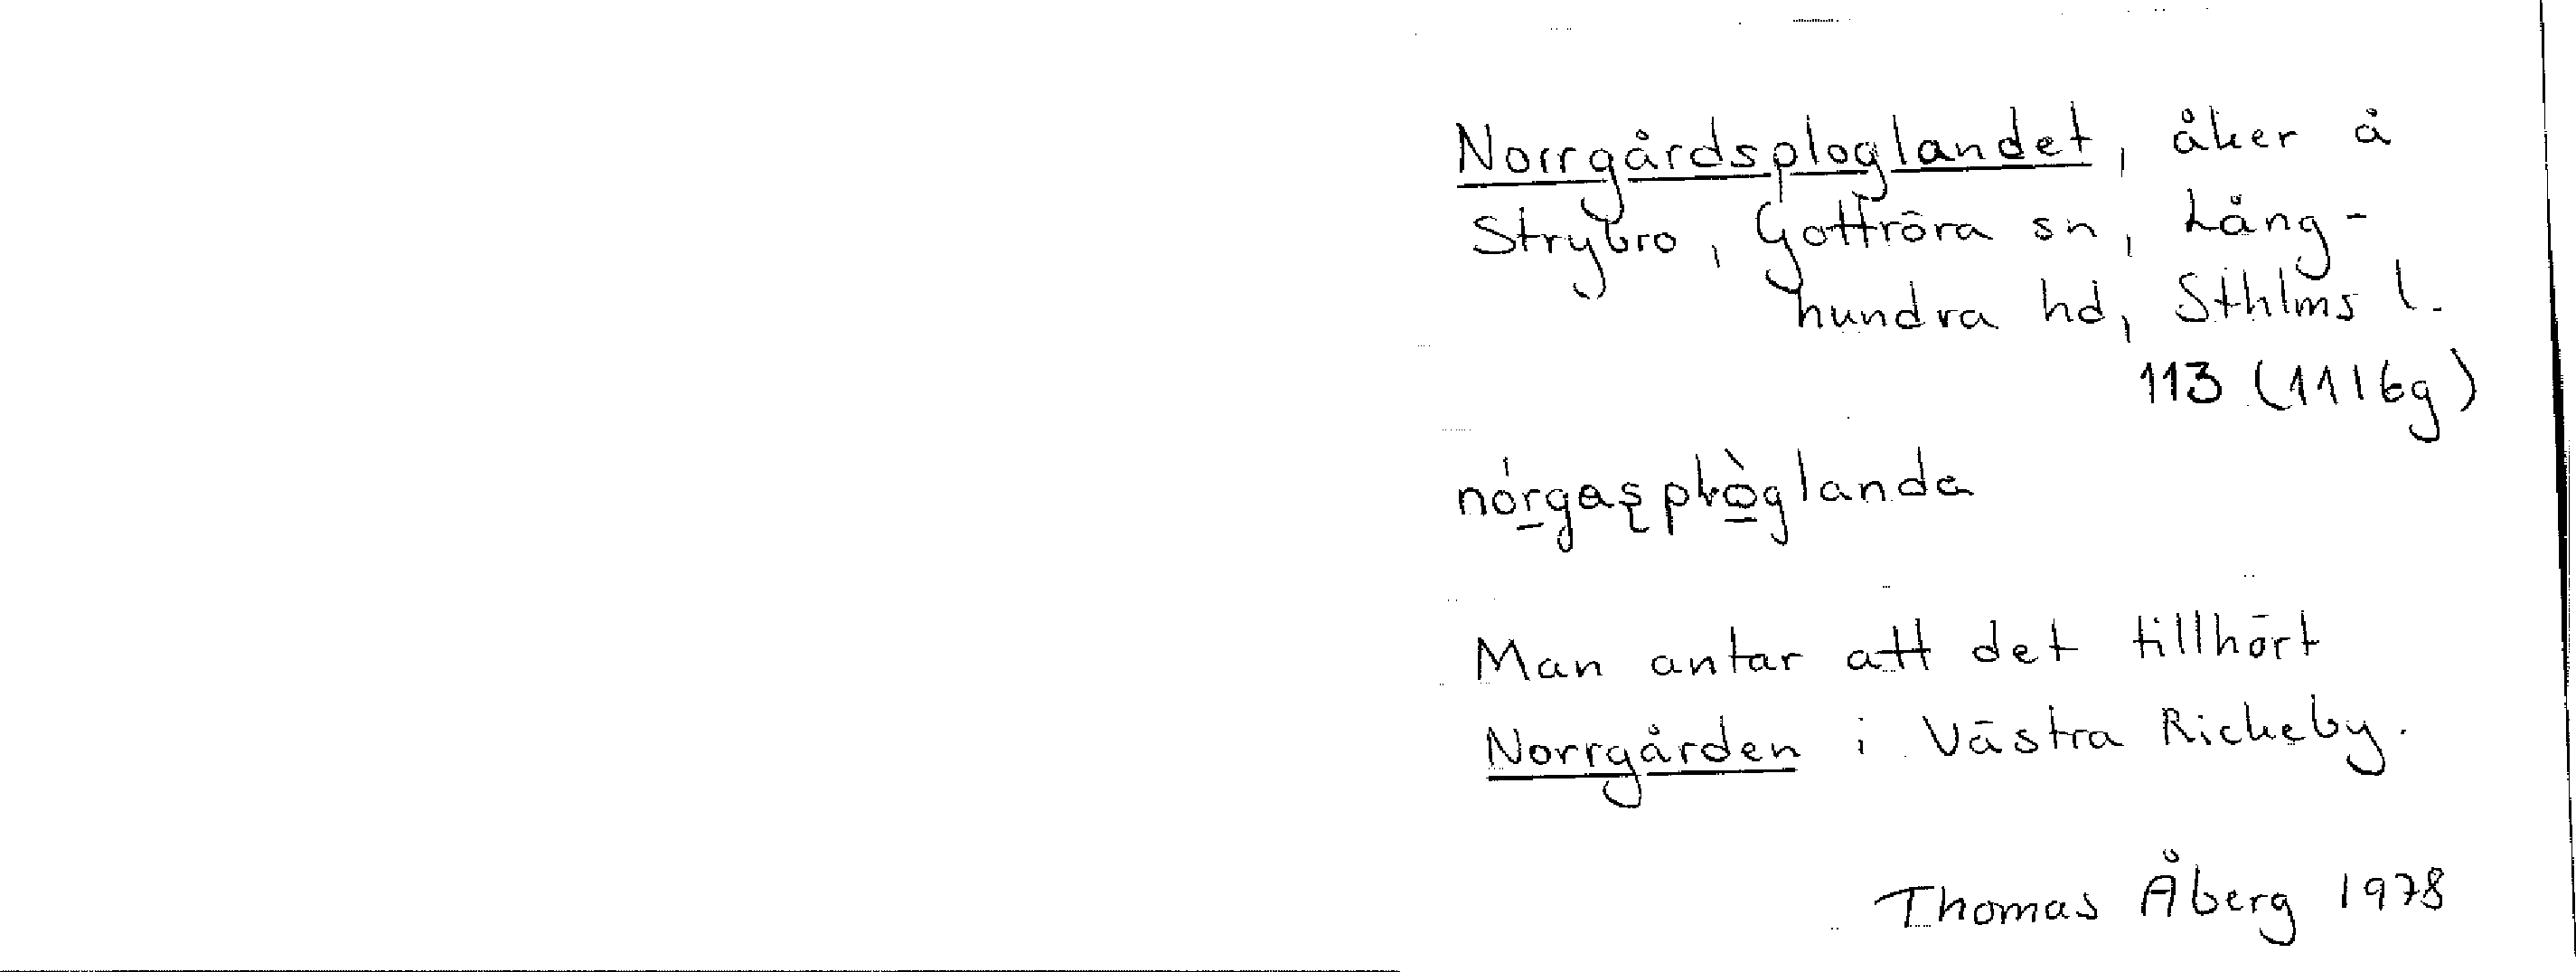 Norrgårdsploglandet, åker å
Strybro, Gottröra sn, Lång-
hundra hd, Sthlms l.
113 (11I6g)
Man antar att det tillhört
Norrgården i Västra Rickeby.
Thomas Åberg 1978